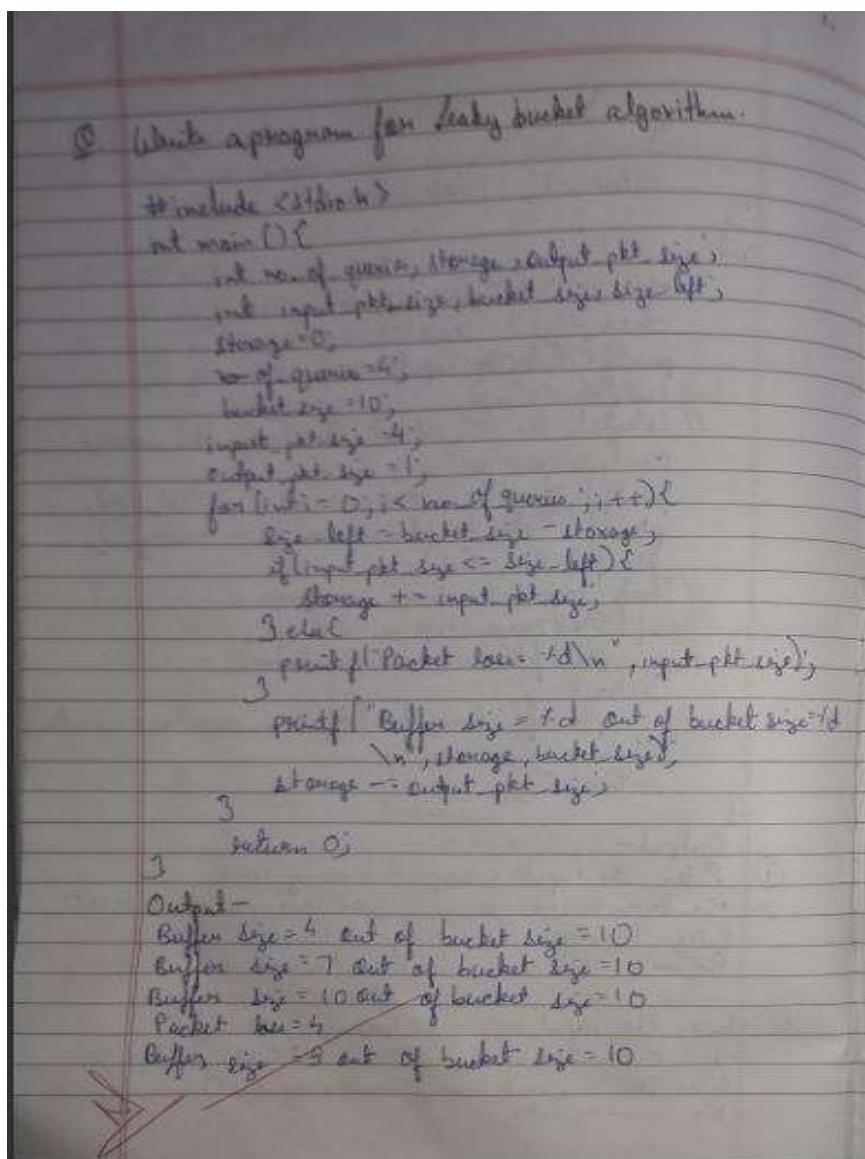 Q Write a program for Leaky bucket algorithm.
#include <stdio.h>
int main () {
int no_of_queries, storage, output_pkt_size;
int input_pkt_size, bucket_size, size_left;
storage=0;
no_of_queries=4;
bucket_size=10;
input_pkt_size=4;
output_pkt_size=1;
for (int i = 0; i < no_of_queries; i++) {
size_left = bucket_size - storage;
if (input_pkt_size <= size_left) {
storage += input_pkt_size;
} else {
printf("Packet loss= %d\n", input_pkt_size);
}
printf ("Buffer size = %d out of bucket size=%d
\n", storage, bucket_size);
storage -= output_pkt_size;
}
return 0;
}
Output -
Buffer size = 4 out of bucket size = 10
Buffer size = 7 out of bucket size = 10
Buffer size = 10 out of bucket size = 10
Packet loss = 4
Buffer size = 9 out of bucket size = 10